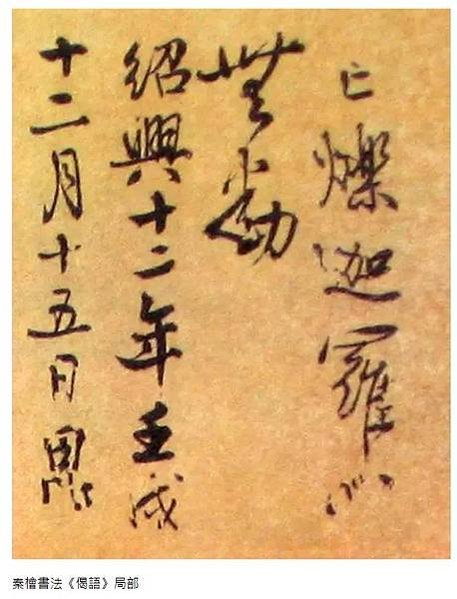 亡爍迦羅心
無動
紹興十二年壬戌
十二月十五日
秦檜書法《偈語》局部